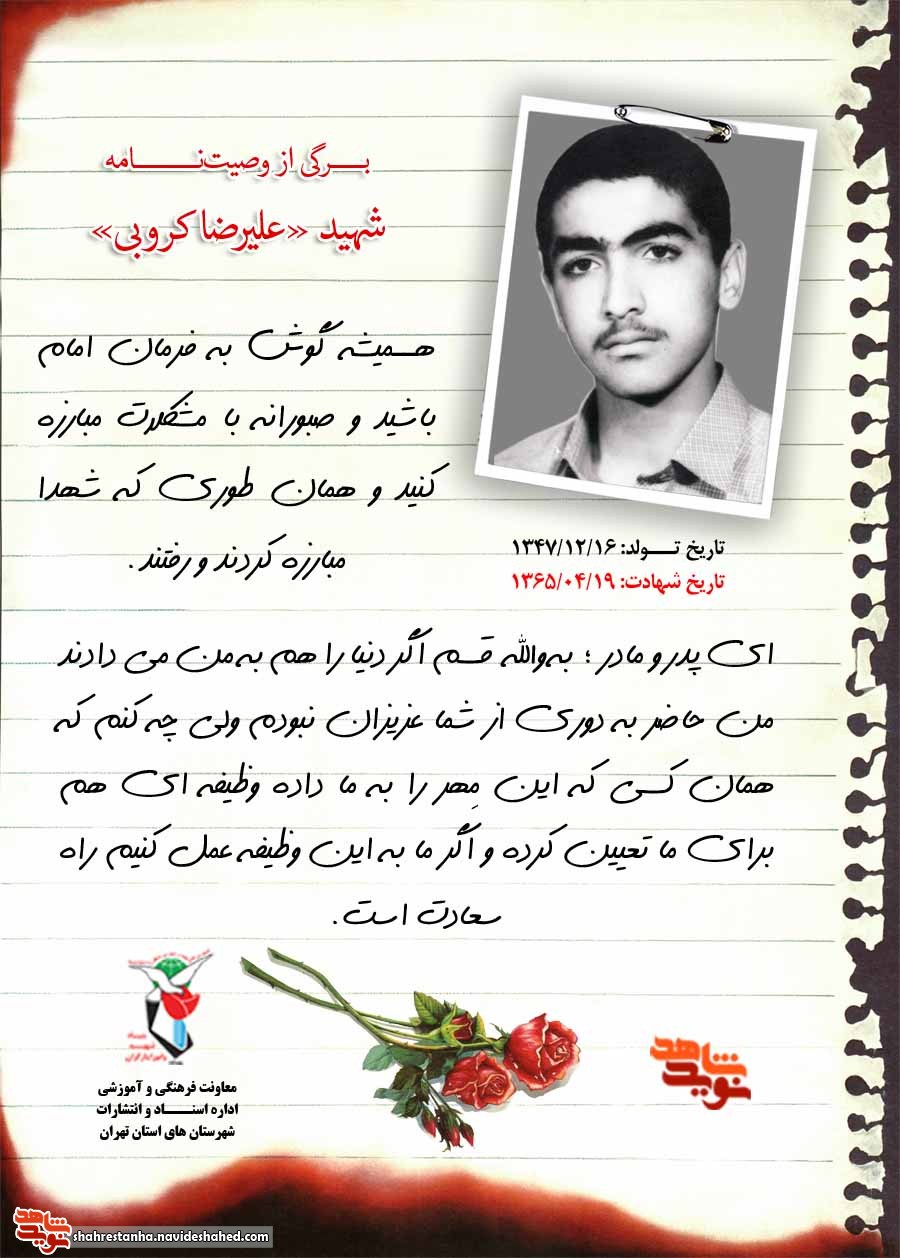 برگی از وصیت‌نامه
شهید «علیرضا کروبی»
همیشه گوش به فرمان امام
باشید و صبورانه با مشکلات مبارزه
کنید و همان طوری که شهدا
مبارزه کردند و رفتند.
تاریخ تولد: ۱۳۴۷/۱۲/۱۶
تاریخ شهادت: ۱۳۶۵/۰۴/۱۹
ای پدر و مادر ؛ به‌والله قسم اگر دنیا را هم به من می دادند
من حاضر به دوری از شما عزیزان نبودم ولی چه کنم که
همان کسی که این مِهر را به ما داده وظیفه ای هم
برای ما تعیین کرده و اگر ما به این وظیفه عمل کنیم راه
سعادت است.
بنیاد
شهید
و امور ایثارگران
معاونت فرهنگی و آموزشی
اداره اسناد و انتشارات
شهرستان های استان تهران
نوید شاهد
نوید شاهد
shahrestanha.navideshahed.com